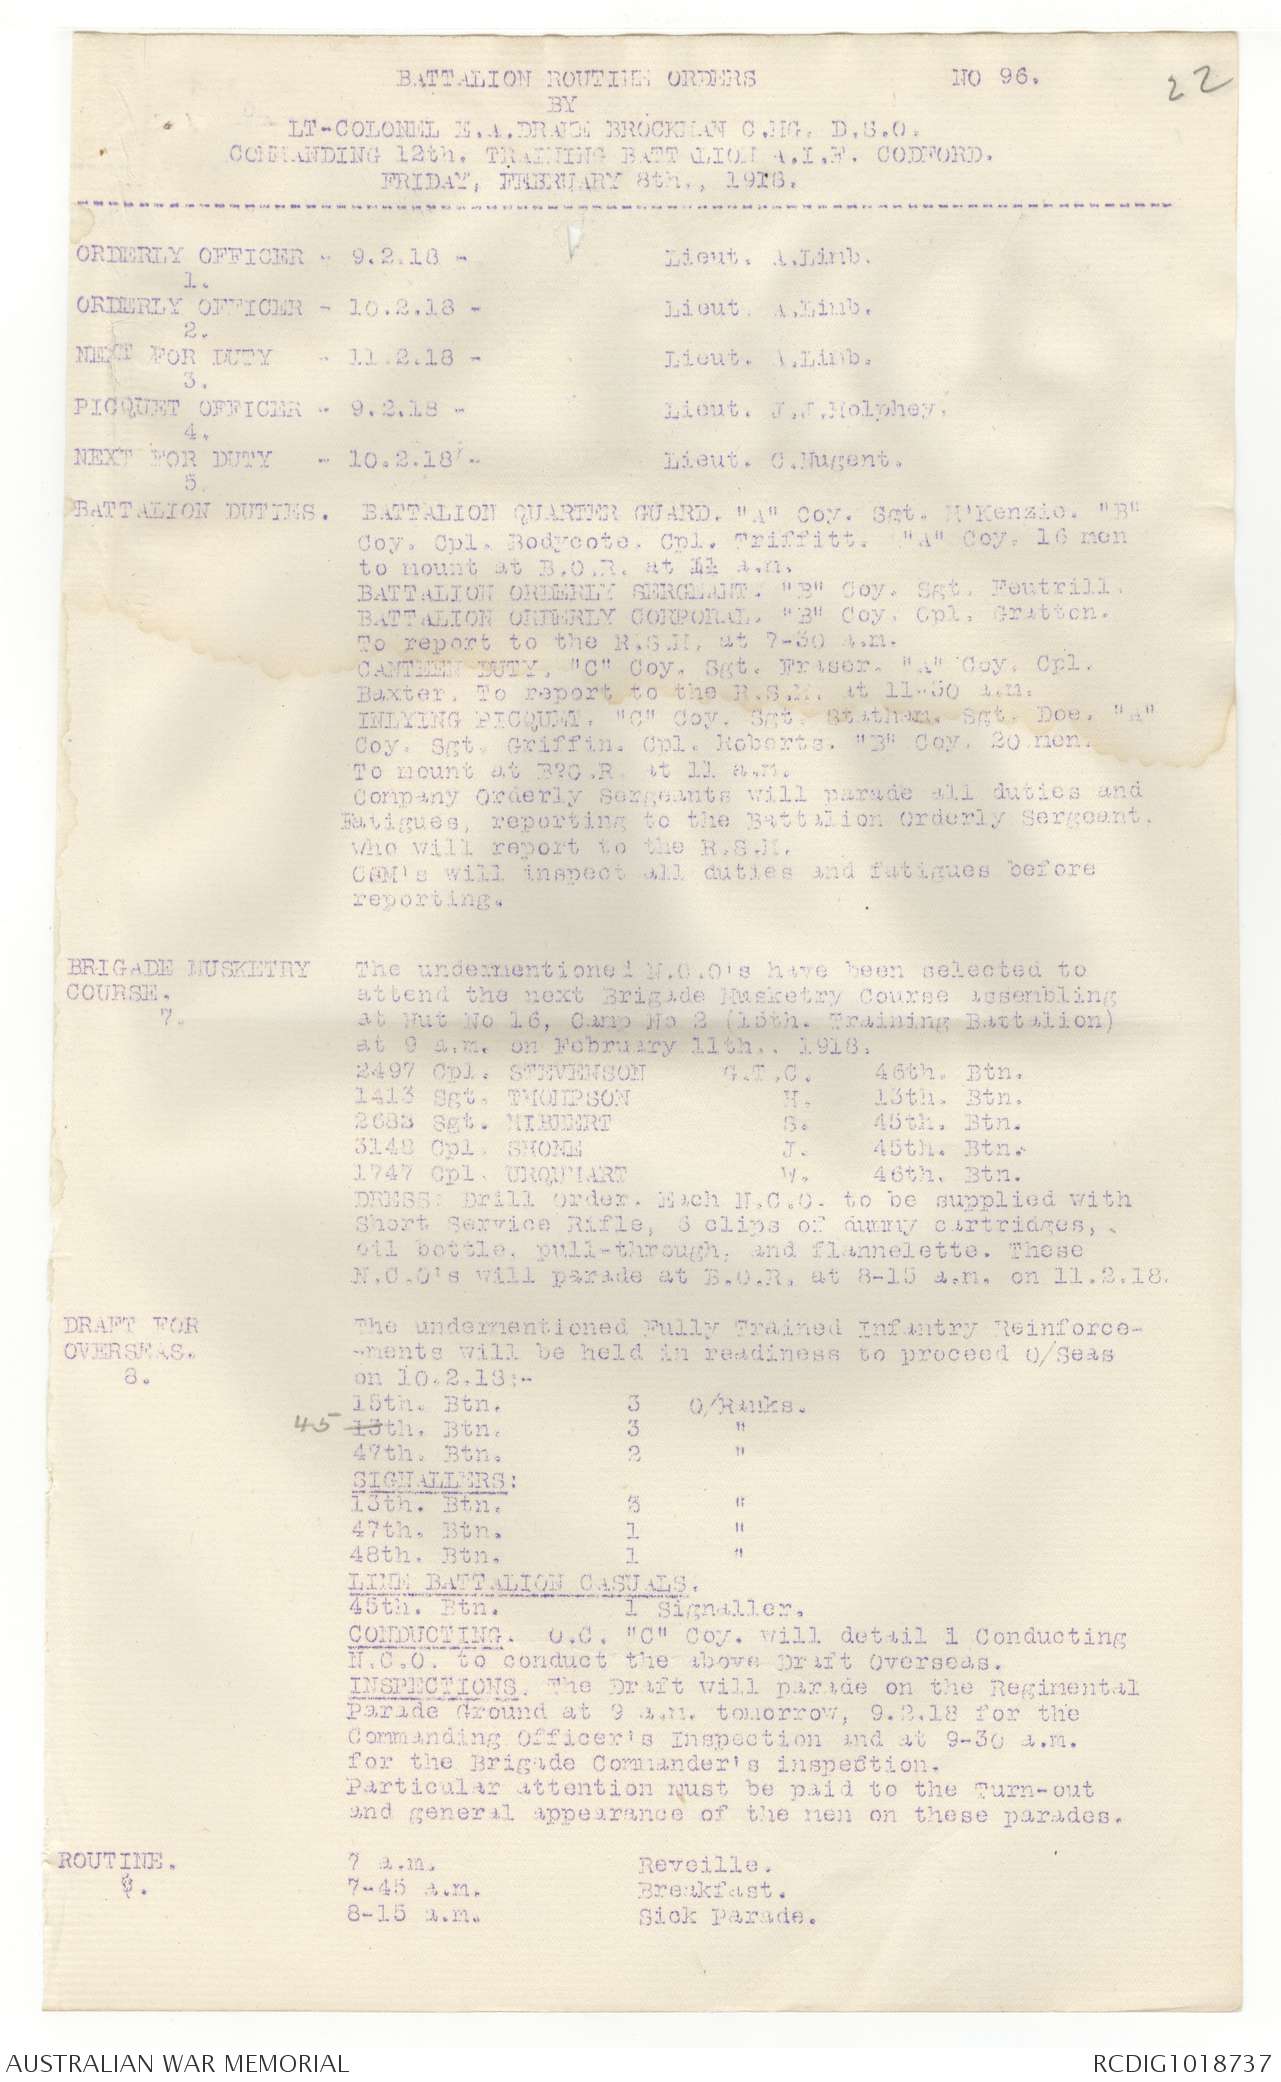 BATTALION ROUTINE ORDERS NO 96. 22
BY
LT-COLONEL E.A.DRAKE BROCKMAN C.MG. D.S.O.
COMMANDING 12th. TRAINING BATTALION A.I.F. CODFORD.
FRIDAY, FEBRUARY 8th., 1918.
ORDERLY OFFICER - 9.2.18 - Lieut. A.Limb.
1.
ORDERLY OFFICER - 10.2.18 - Lieut. A.Limb.
2.
NEXT FOR DUTY - 11.2.18 - Lieut. A.Limb.
3.
PICQUET OFFICER - 9.2.18 - Lieut. J.J.Molphey.
4.
NEXT FOR DUTY - 10.2.18 - Lieut. C.Nugent.
5.
BATTALION DUTIES. BATTALION QUARTER GUARD. "A" Coy. Sgt. M'Kenzie. "B"
Coy. Cpl. Bodycote. Cpl. Triffitt. "A" Coy. 16 men
to mount at B.O.R. at 11 a.m.
BATTALION ORDERLY SERGEANT. "B" Coy. Sgt. Feutrill.
BATTALION ORDERLY CORPORAL. "B" Coy. Cpl. Gratton.
To report to the R.S.M. at 7-30 a.m.
CANTEEN DUTY. "C" Coy. Sgt. Fraser. "A" Coy. Cpl.
Baxter. To report to the R.S.M. at 11-30 a.m.
INLYING PICQUET. "C" Coy. Sgt. Statham. Sgt. Doe. "A"
Coy. Sgt. Griffin. Cpl. Roberts. "B" Coy. 20 men.
To mount at B?O.R. at 11 a.m.
Company Orderly Sergeants will parade all duties and
Fatigues, reporting to the Battalion Orderly Sergeant.
who will report to the R.S.M.
CSM's will inspect all duties and fatigues before
reporting.
BRIGADE MUSKETRY The undermentioned N.C.O's have been selected to
COURSE. attend the next Brigade Musketry Course assembling
7. at Hut No 16, Camp No 2 (13th. Training Battalion)
at 9 a.m. on February 11th., 1918.
2497 Cpl. STEVENSON G.T.C. 46th. Btn.
1413 Sgt. THOMPSON H. 13th. Btn.
2683 Sgt. HIBBERT S. 45th. Btn.
3148 Cpl. SHONE J. 45th. Btn.
1747 Cpl. URQUHART W. 46th. Btn.
DRESS: Drill Order. Each N.C.O. to be supplied with
Short Service Rifle, 6 clips of dummy cartridges,
oil bottle, pull-through, and flannelette. These
N.C.O's will parade at B.O.R. at 8-15 a.m. on 11.2.18.
DRAFT FOR The undermentioned Fully Trained Infantry Reinforce-
OVERSEAS. -ments will be held in readiness to proceed O/Seas
8. on 10.2.18:-
15th. Btn. 3 O/Ranks.
45 13th. Btn. 3 "
47th. Btn. 2 "
SIGNALLERS:
13th. Btn. 3 "
47th. Btn. 1 "
48th. Btn. 1 "
LINE BATTALION CASUALS.
45th. Btn. 1 Signaller.
CONDUCTING. O.C. "C" Coy. will detail 1 Conducting
N.C.O. to conduct the above Draft Overseas.
INSPECTIONS. The Draft will parade on the Regimental
Parade Ground at 9 a.m. tomorrow, 9.2.18 for the
Commanding Officer's Inspection and at 9-30 a.m.
for the Brigade Commander's inspection.
Particular attention must be paid to the Turn-out
and general appearance of the men on these parades.
ROUTINE. 7 a.m. Reveille.
9. 7-45 a.m. Breakfast.
8-15 a.m. Sick Parade.
AUSTRALIAN WAR MEMORIAL RCDIG1018737